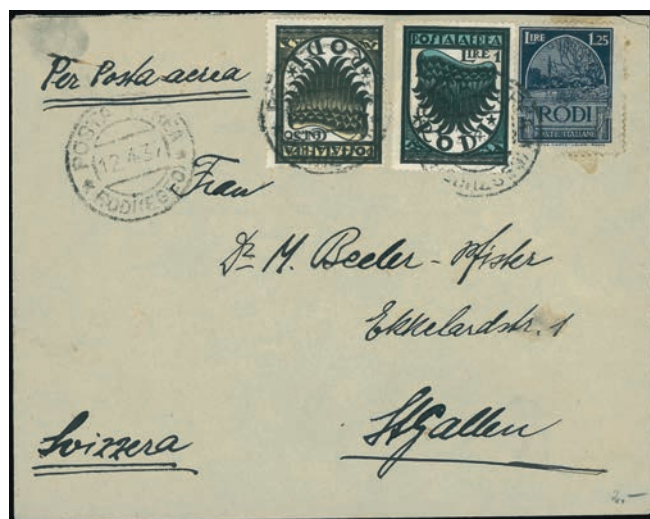 Per Posta aerea
POSTA AEREA
12.4.37
RODI (EGEO)
POSTA AEREA
CENT. 50
RODI
POSTA AEREA
LIRE 1
RODI
LIRE 1,25
RODI
POSTE ITALIANE
Frau
Dr M. Beeler - Pfister
Ekkehardstr. 1
St Gallen
Svizzera
2.-